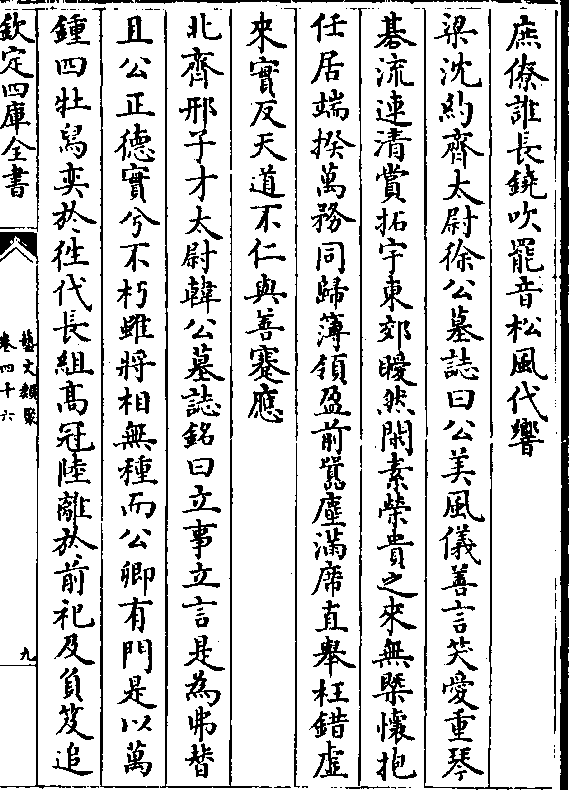 庶僚誰長鐃吹罷音松風代響
梁沈約齊太尉徐公墓誌曰公美風儀善言笑愛重琴
碁流連清賞拓宇東郊曖然閑素榮貴之來無槩懷抱
任居端揆萬務同歸簿領盈前囂塵滿席直舉枉錯虛
來實反天道不仁與善蹇應
北齊邢子才太尉韓公墓誌銘曰立事立言是為弗朁
且公正德實兮不朽雖將相無種而公卿有門是以萬
鍾四牡舃奕於徃代長組髙冠陸離於前祀及負笈追
欽定四庫全書
藝文類聚
卷四十六
九